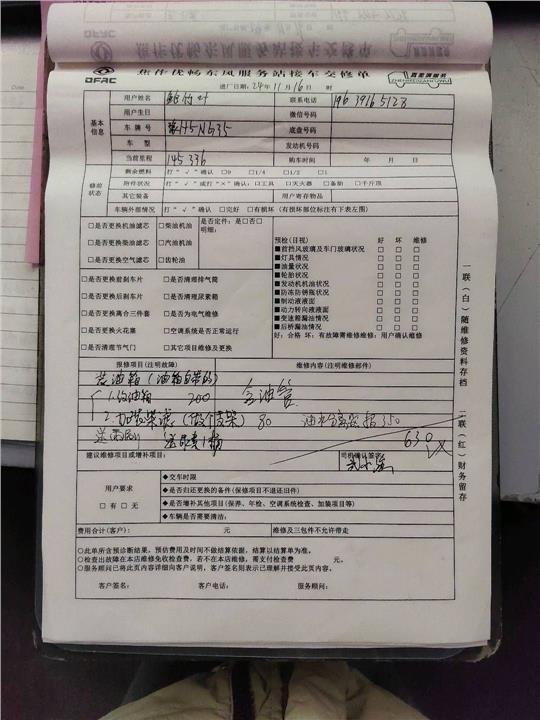 DFAC
焦作优畅东风服务站接车交修单
进厂日期：24年11月16日 时
基本信息
用户姓名
联系电话 196 3916 5128
用户生日
微信号码
车牌号 豫H5N635
底盘号码
车 型
发动机号码
当前里程 145336
购车时间 年 月 日
修前状态
剩余燃料 打“√”确认 □0 □1/4 □1/2 □1
附件状况 打“√”或打“×”确认：□工具 □灭火器 □备胎 □千斤顶
其它装备
用户寄存物品
车辆外部情况 打“√”确认 □完好 □有损坏（有损坏部位标注右下表左图）
□是否更换机油滤芯 □柴油机油
□是否更换柴油滤芯 □汽油机油
□是否更换空气滤芯 □齿轮油
是否定件：是□否□
明细：
□是否更换前刹车片 □是否清理排气筒
□是否更换后刹车片 □是否清理尿素箱
□是否更换离合三件套 □是否为电气维修
□是否更换火花塞 □空调系统是否正常运行
□是否清理节气门 □其它项目维修及更换
预检(目视) 好 坏 维修
■首挡风玻璃及车门玻璃状况 □ □ □
■灯具情况 □ □ □
■油量状况 □ □ □
■轮胎状况 □ □ □
■发动机机油状况 □ □ □
■防冻防锈瓶状况 □ □ □
■制动液液面 □ □ □
■动力转向液液面 □ □ □
■变速箱漏油情况 □ □ □
■后桥漏油情况 □ □ □
好：合格 坏：有故障需维修维修：用户确认维修
报修项目(注明故障)
维修内容(注明维修部件)
洗油箱（油箱自带的）
1.洗油箱 200 含油管
2.加装柴滤（做个支架）80 油水分离器 350
630
建议维修项目或增补项目：
司机确认签字：
用户要求
□有 □无
◆交车时限
◆是否归还更换的备件(保修项目不退还旧件)
◆是否增补其他项目(保养、年检、空调系统检查、加装项目等)
◆车辆是否需要清洁：
费用合计(客户)： 元
维修及三包件不允许带走
○此单所含预诊断结果，预估费用及时间不做结算依据，结算以结算单为准。
○检查出故障在本店维修免收检查费，若不在本店维修，需支付检查费 元。
○服务顾问已将此页内容详细向客户说明，客户签名则表示已理解并接受此页内容。
客户签名： 客户电话： 服务顾问：
一联（白）随维修资料存档
二联（红）财务留存